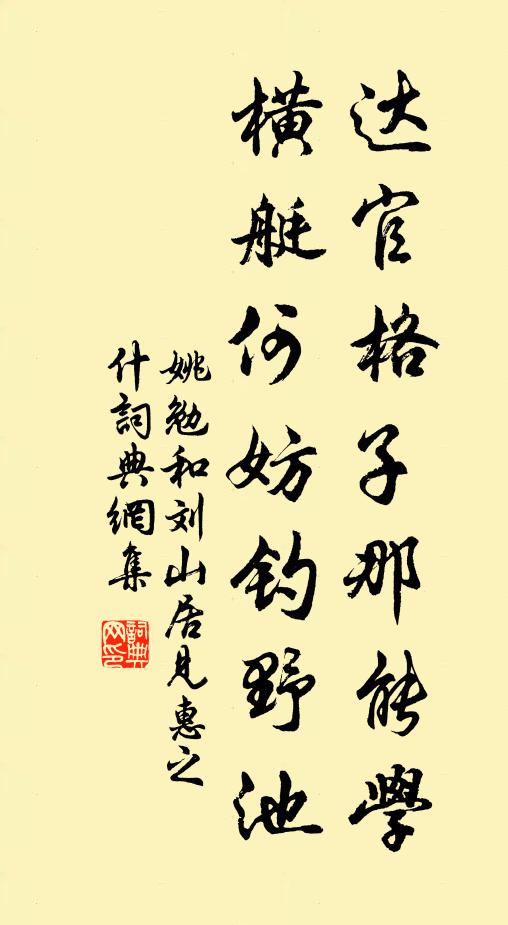 达官格子那能學
橫艇何妨钓野池
姚勉和刘山居見惠之
什詞典網集
詞典
网印